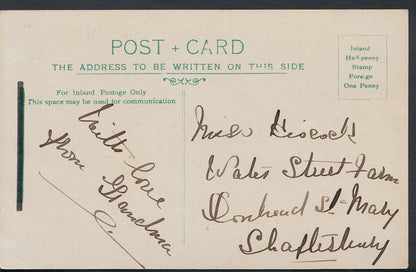 POST + CARD
THE ADDRESS TO BE WRITTEN ON THIS SIDE
Inland
Half-penny
Stamp
Foreign
One Penny
For Inland Postage Only
This space may be used for communication
With love
from Grandma
Miss Hiscock
Water Street Farm
Donhead St Mary
Shaftesbury